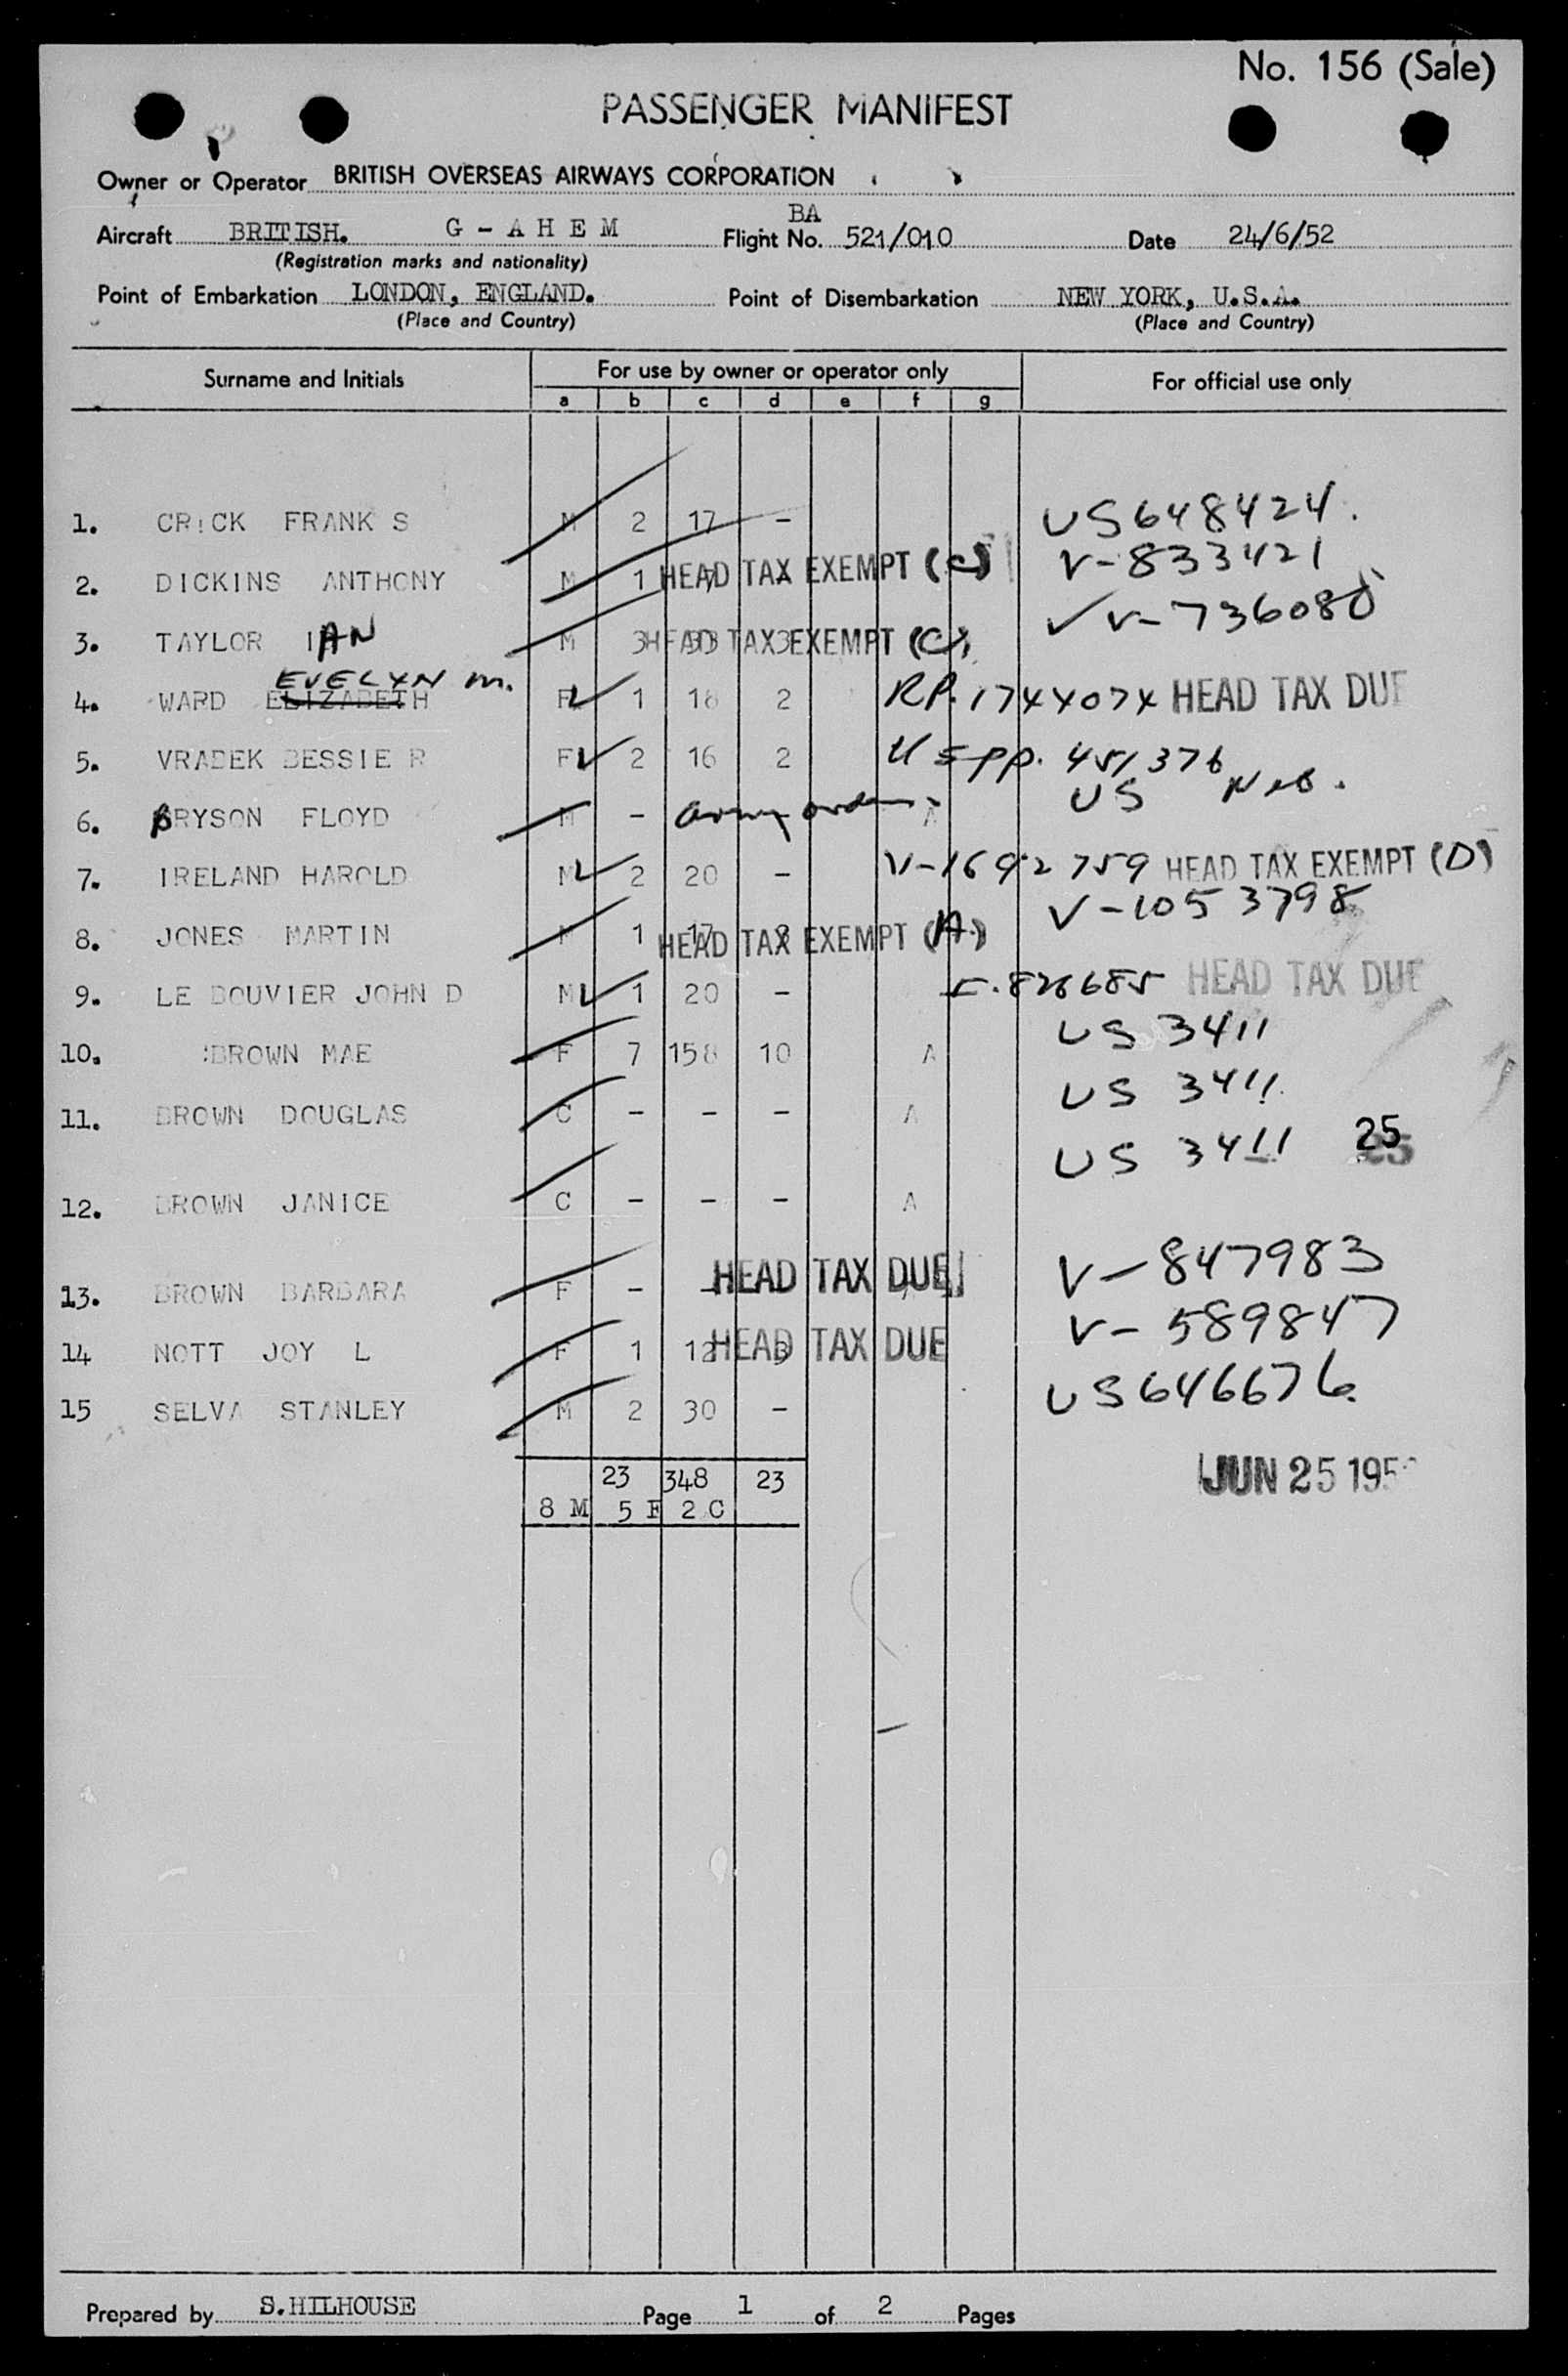 No. 156 (Sale)
PASSENGER MANIFEST
Owner or Operator BRITISH OVERSEAS AIRWAYS CORPORATION
BA
Aircraft BRITISH. G - A H E M Flight No. 521/010 Date 24/6/52
(Registration marks and nationality)
Point of Embarkation LONDON, ENGLAND. Point of Disembarkation NEW YORK, U.S.A.
(Place and Country) (Place and Country)
Surname and Initials For use by owner or operator only For official use only
a b c d e f g
1. CRICK FRANK S M 2 17 - US648424.
2. DICKINS ANTHONY M 1 HEAD TAX EXEMPT (C) V-833421
3. TAYLOR IAN M 3 33 3 HEAD TAX EXEMPT (C) V-736080
EVELYN M.
4. WARD ELIZABETH F 1 18 2 RP. 1744074 HEAD TAX DUE
5. VRADEK BESSIE R F 2 16 2 US pp. 451376
6. BRYSON FLOYD M - Army orders A US Neb.
7. IRELAND HAROLD M 2 20 - V-1692759 HEAD TAX EXEMPT (D)
8. JONES MARTIN M 1 17 3 HEAD TAX EXEMPT (A) V-1053798
9. LE DOUVIER JOHN D M 1 20 - 826685 HEAD TAX DUE
10. BROWN MAE F 7 158 10 A US 3411
11. BROWN DOUGLAS C - - - A US 3411
12. BROWN JANICE C - - - A US 3411 25
13. BROWN BARBARA F - - HEAD TAX DUE V-847983
14 NOTT JOY L F 1 12 3 HEAD TAX DUE V-589847
15 SELVA STANLEY M 2 30 - US646676
23 348 23
8 M 5 F 2 C
JUN 25 195
Prepared by S.HILHOUSE Page 1 of 2 Pages